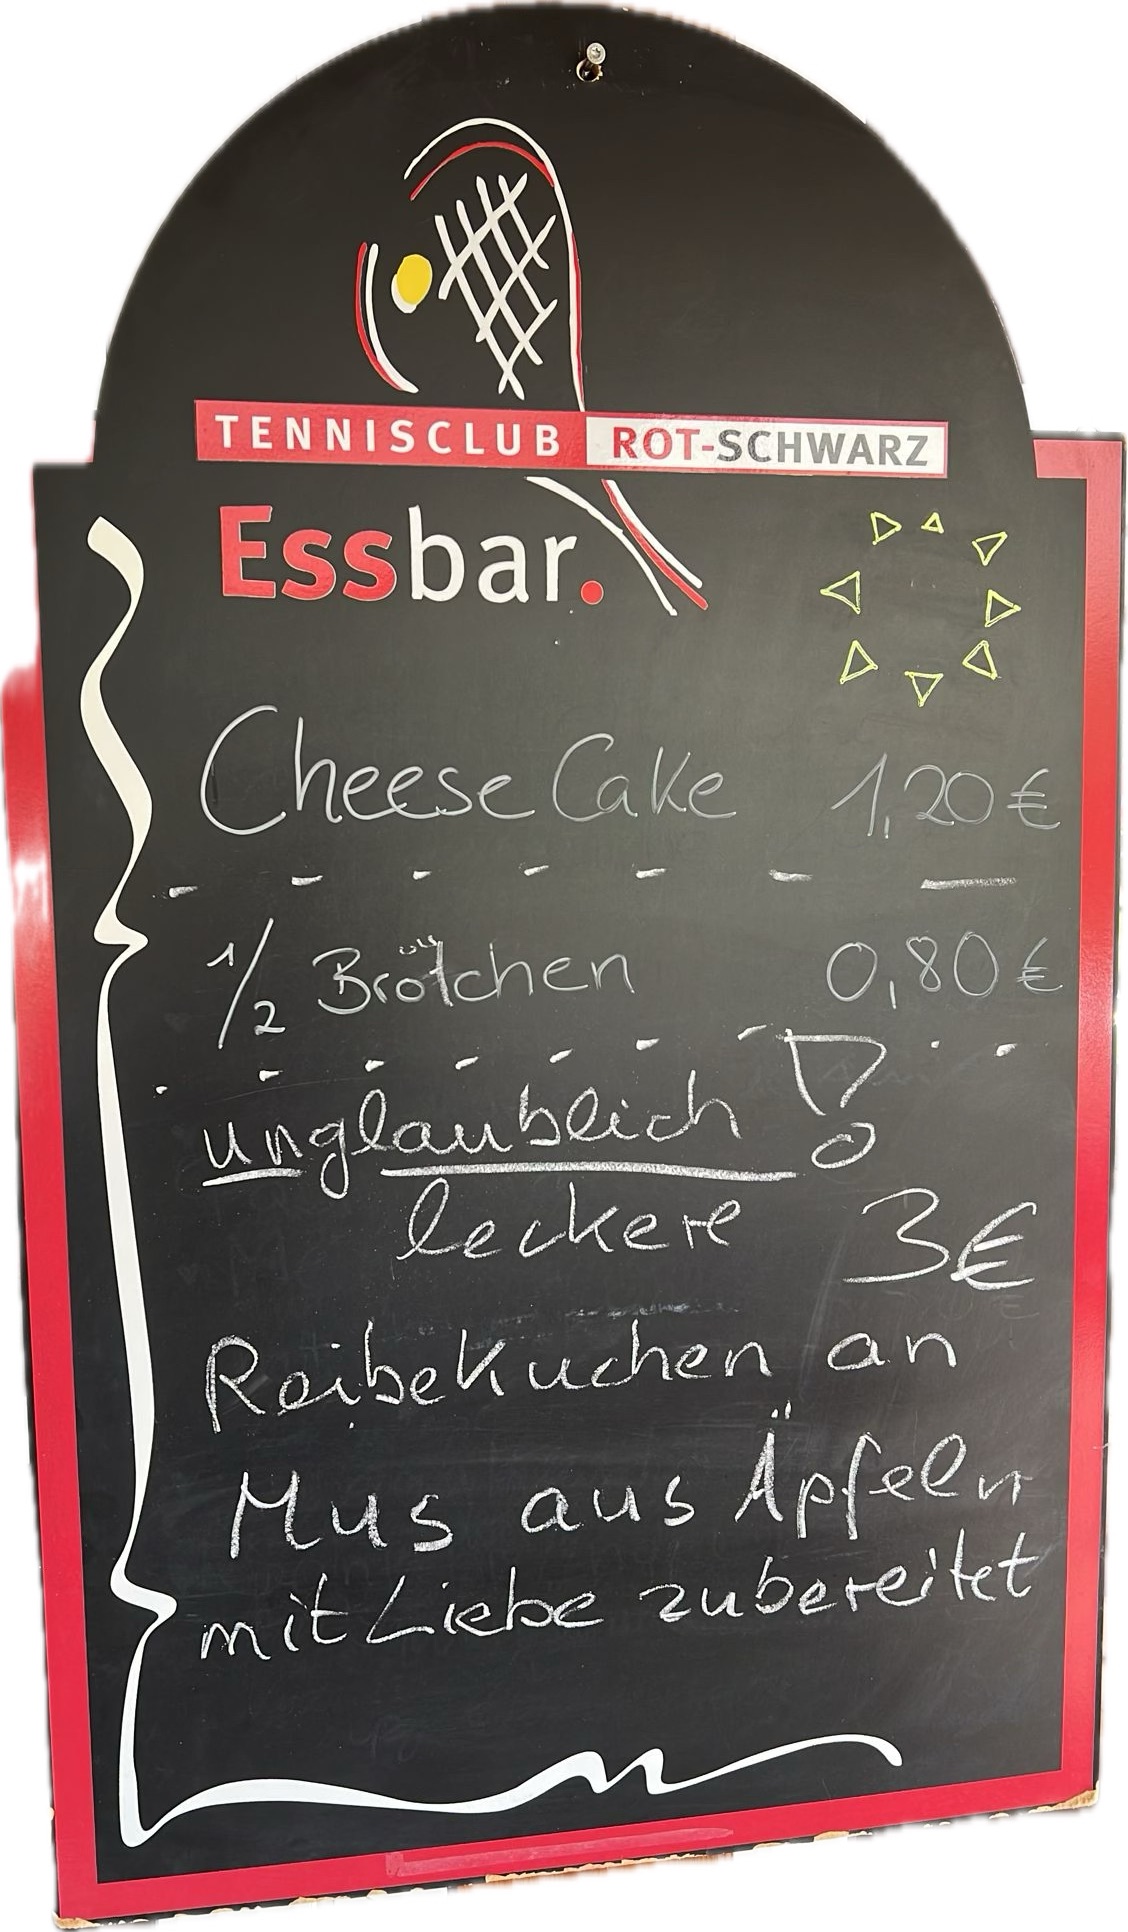 TENNISCLUB ROT-SCHWARZ
Essbar.
Cheese Cake 1,20 €
1/2 Brötchen 0,80 €
unglaublich !
leckere 3€
Reibekuchen an
Mus aus Äpfeln
mit Liebe zubereitet